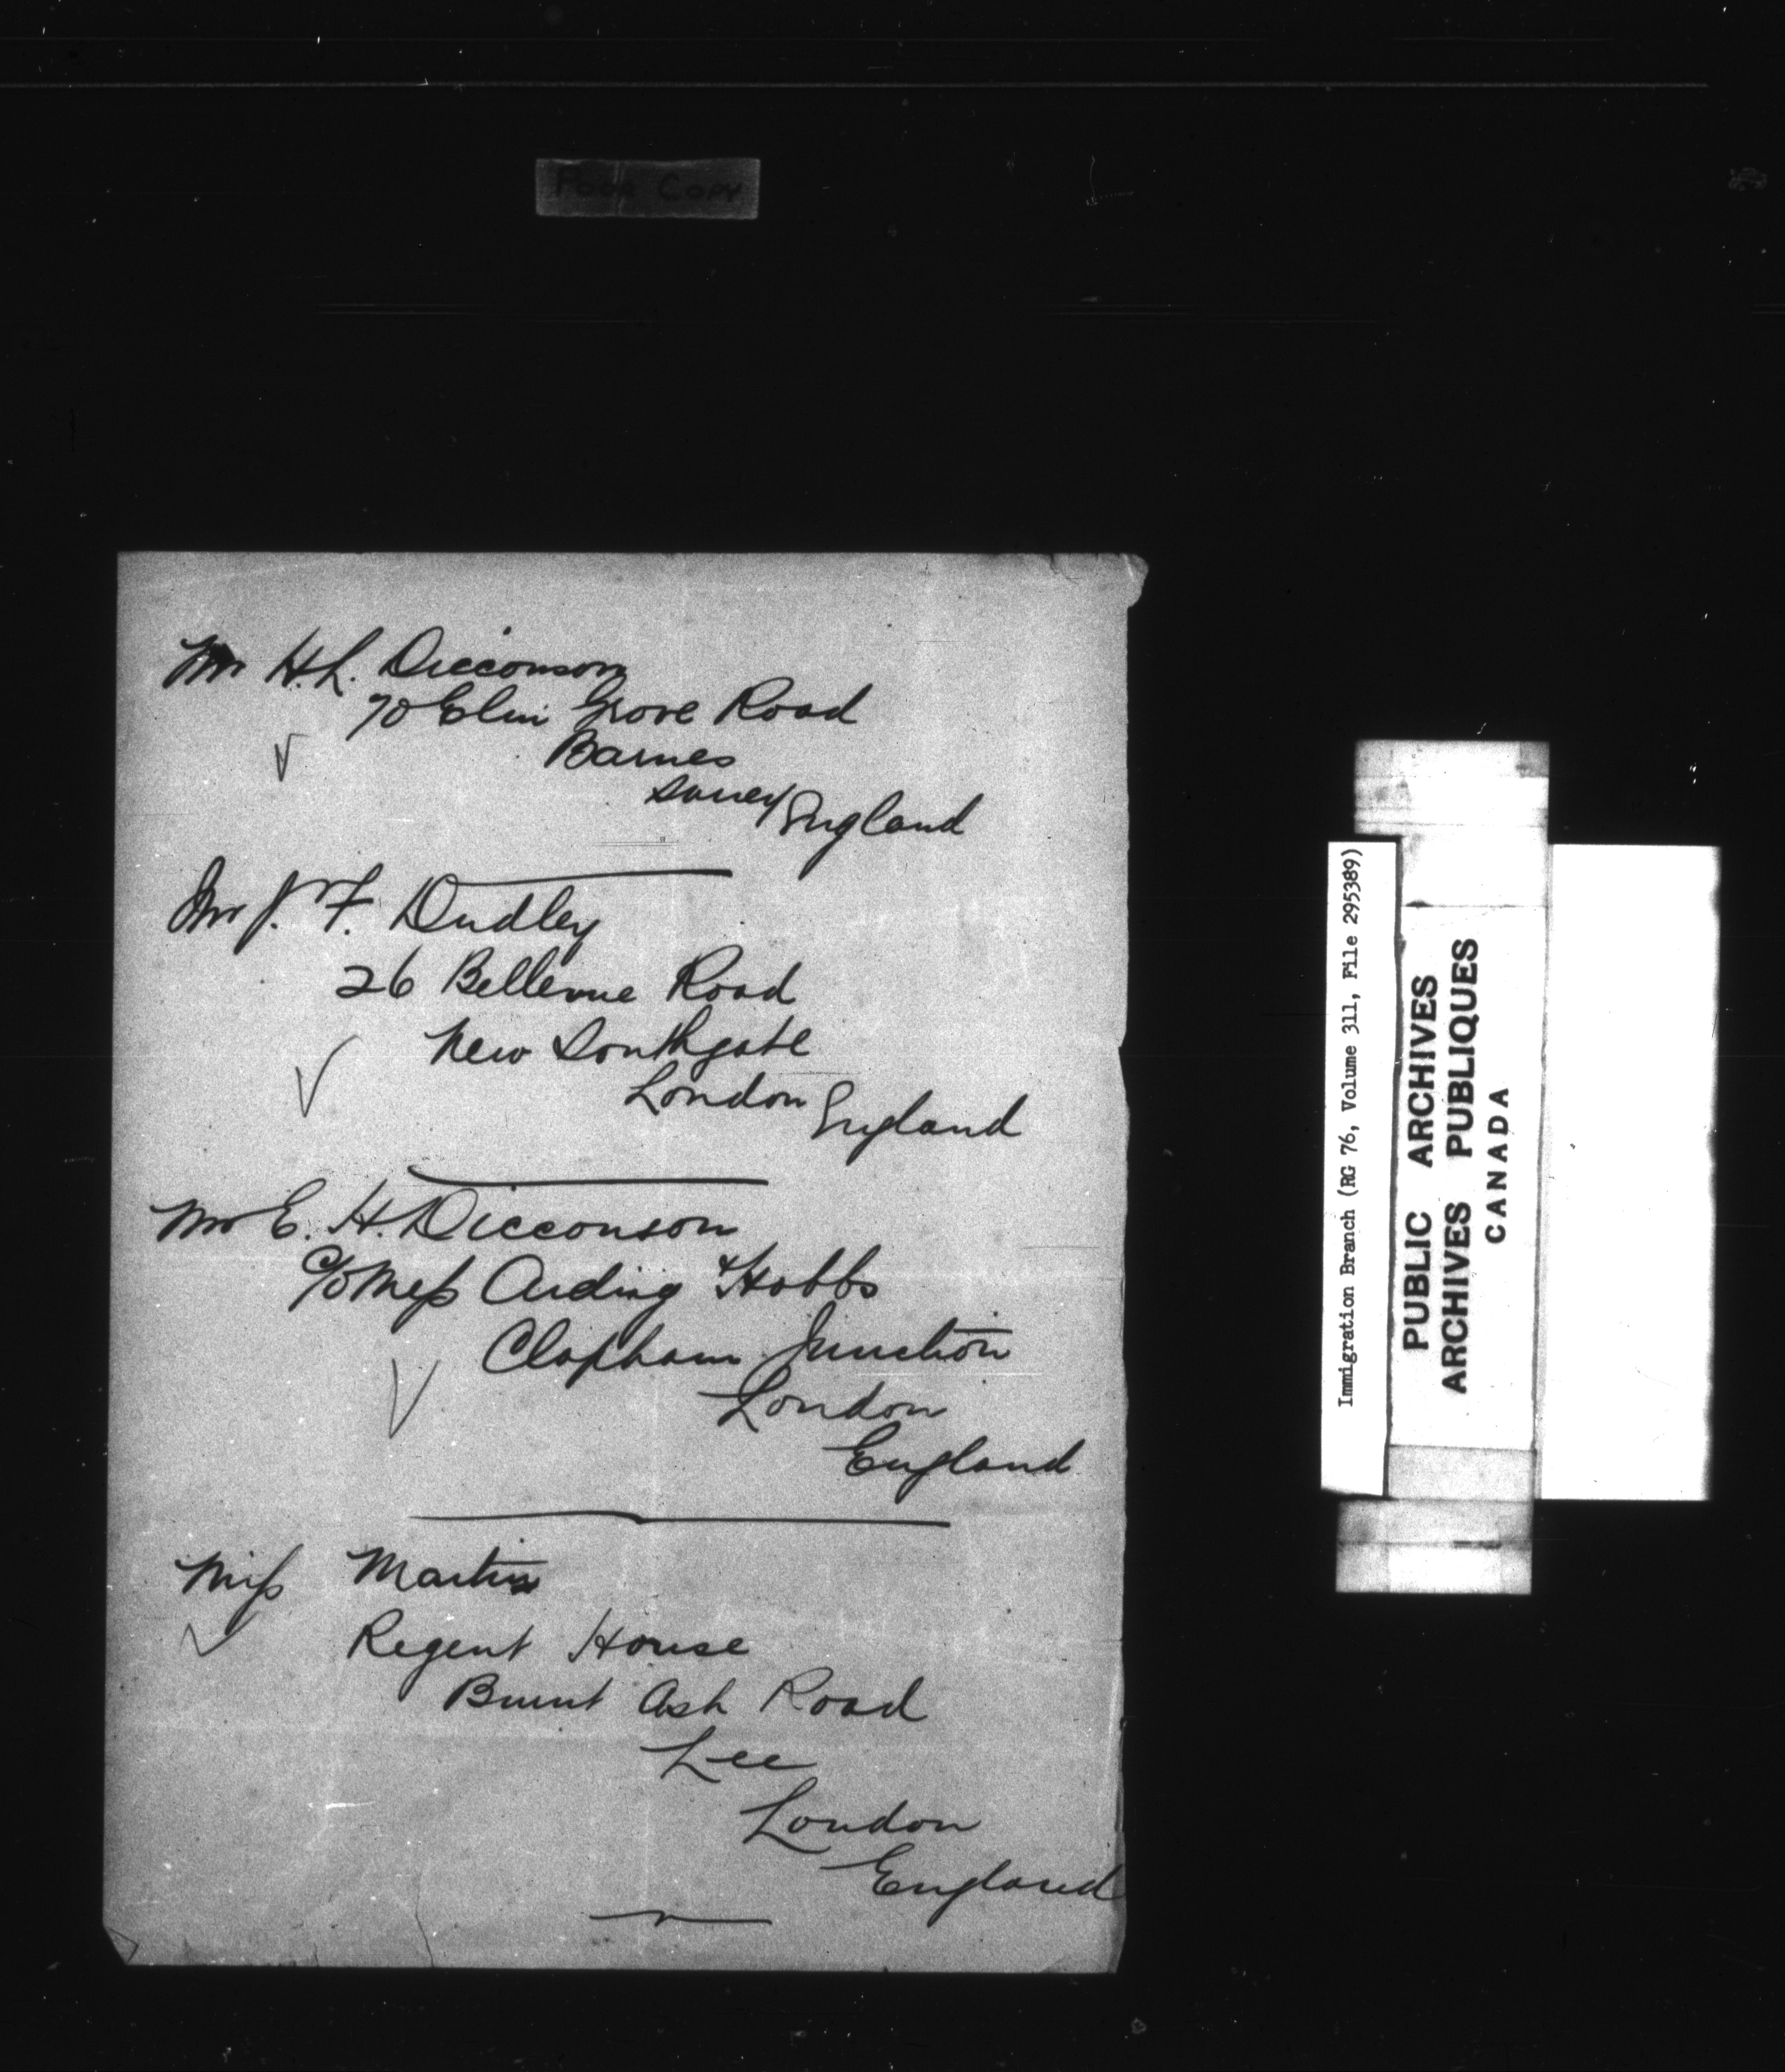 Poor Copy
Mr H.L. Dicconson
70 Elm Grove Road
Barnes
Surrey England
Mr J. F. Dudley
26 Bellevue Road
New Southgate
London England
Mr E. H. Dicconson
c/o Mess Arding & Hobbs
Clapham Junction
London
England
Miss Martin
Regent House
Burnt Ash Road
Lee
London
England
Immigration Branch (RG 76, Volume 311, File 295389)
PUBLIC ARCHIVES
ARCHIVES PUBLIQUES
CANADA